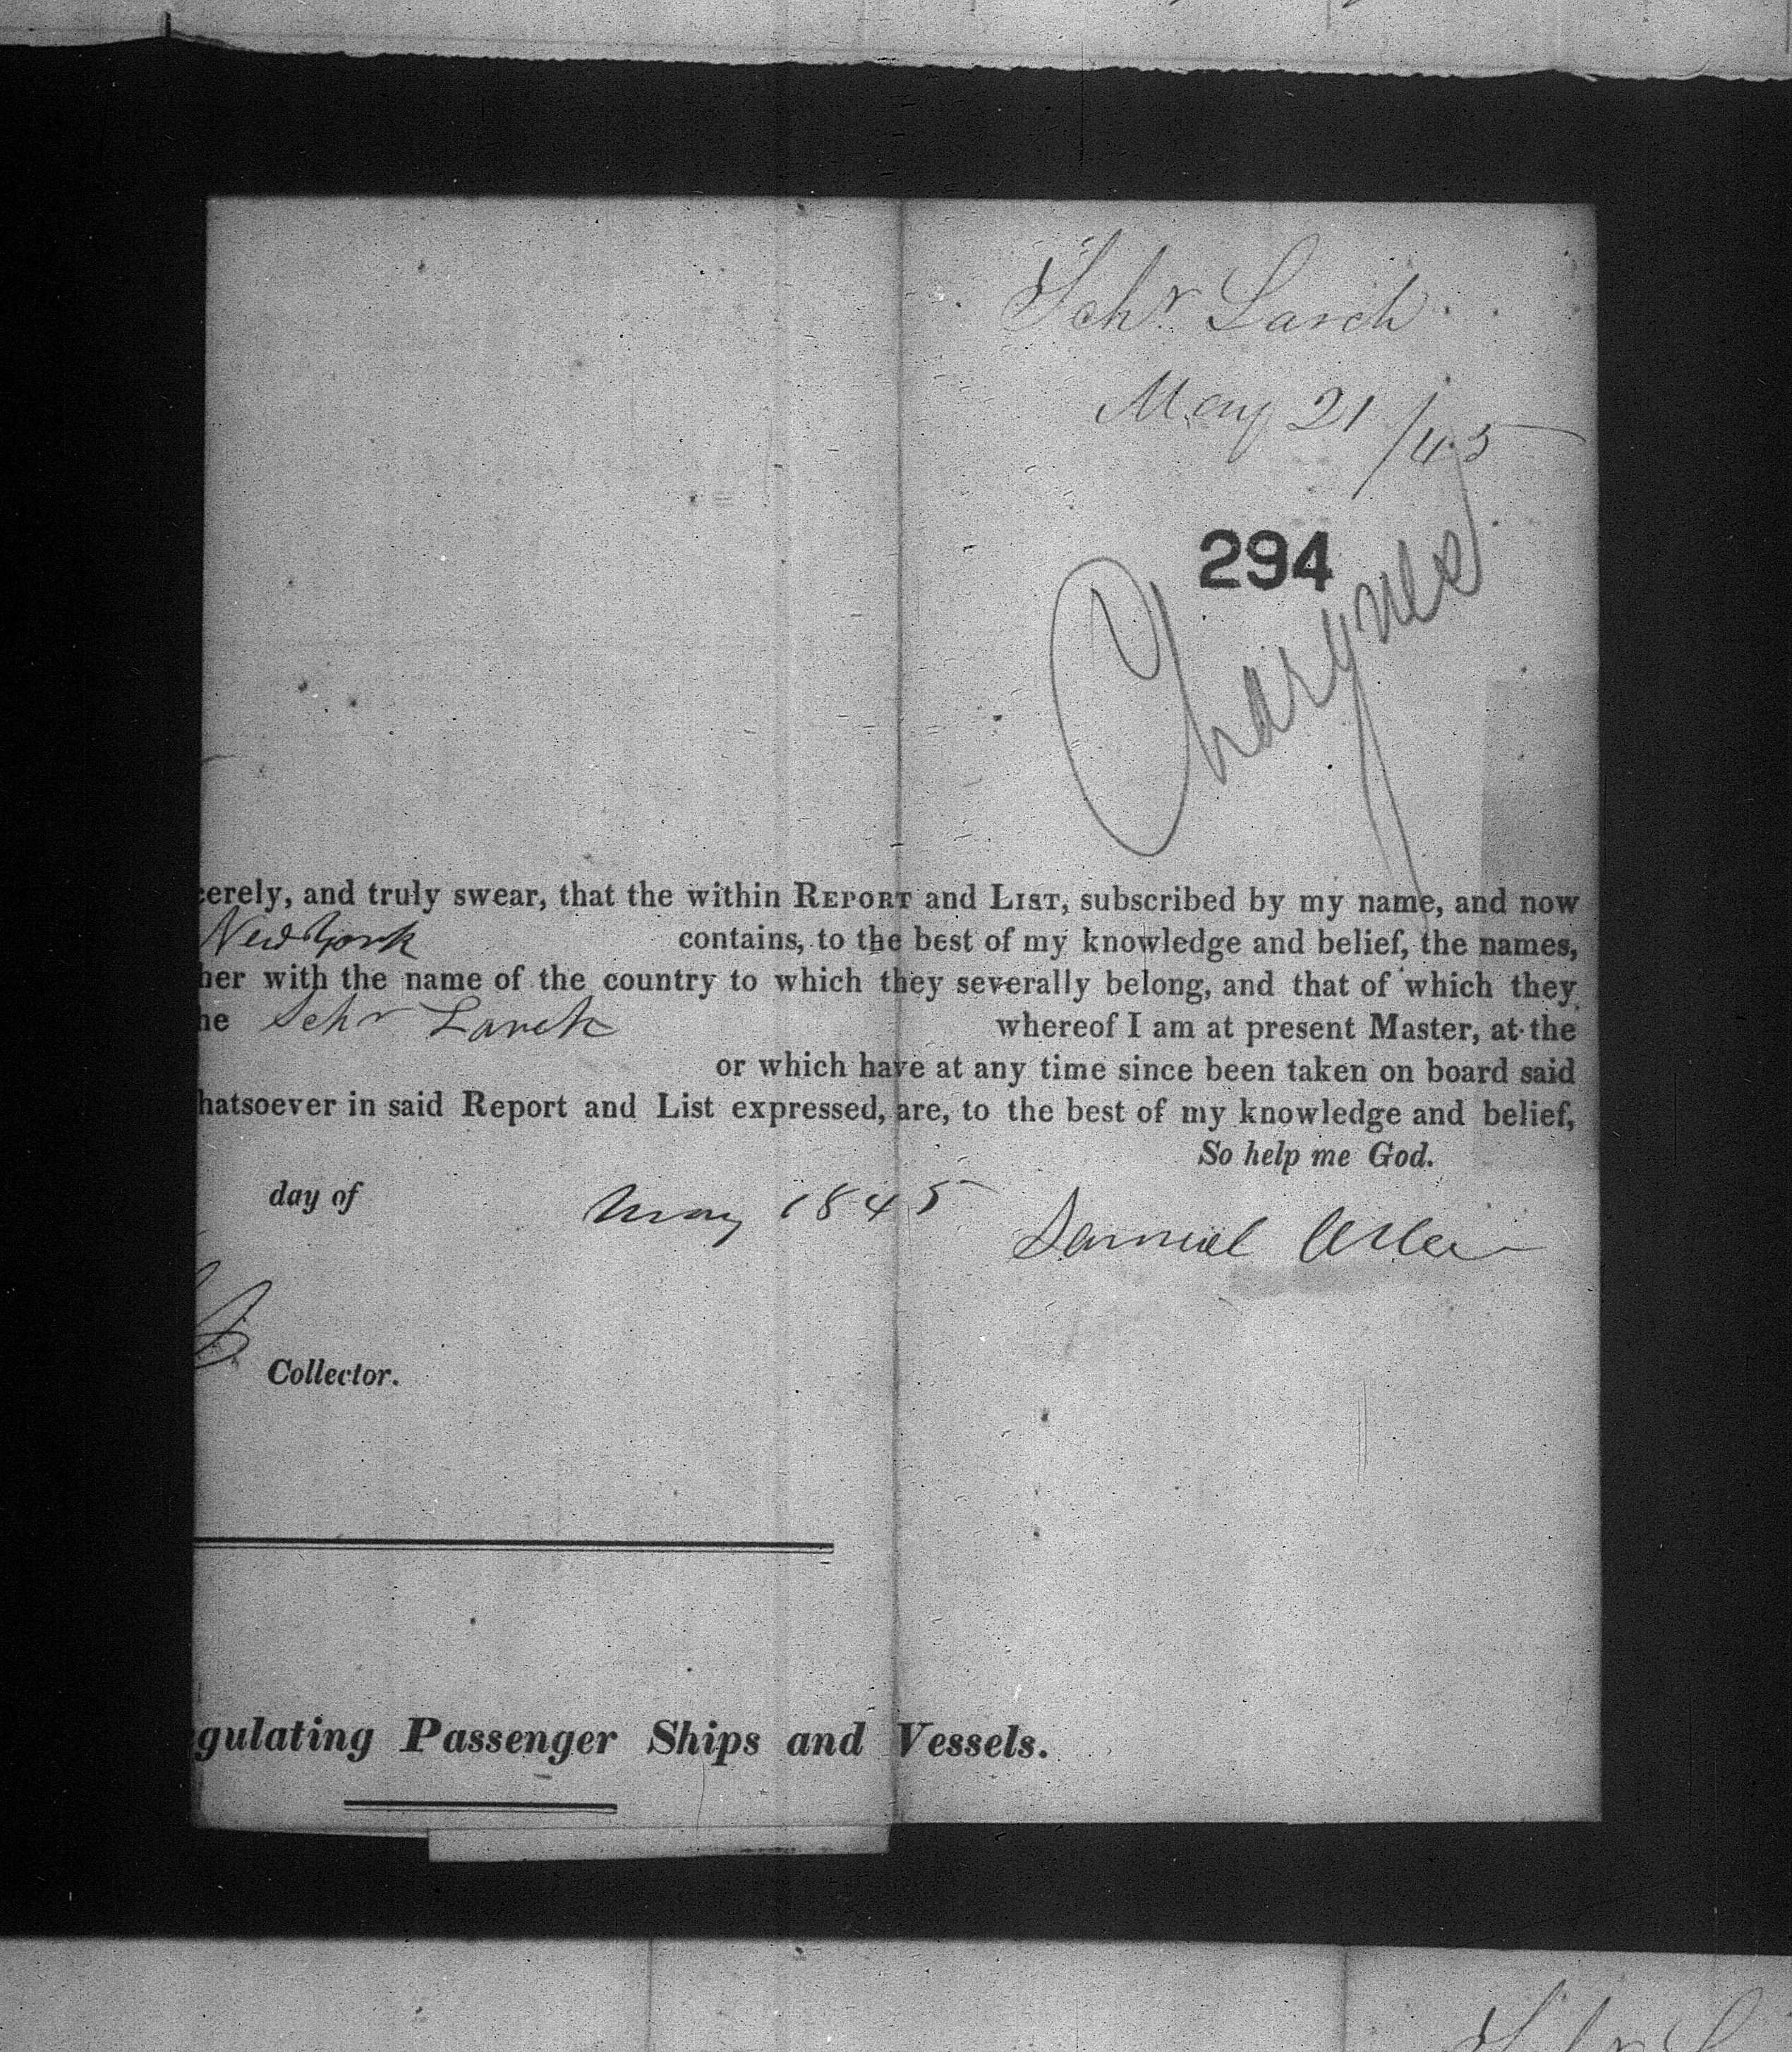 Schr Larch
May 21/45
294
cerely, and truly swear, that the within REPORT and LIST, subscribed by my name, and now
New York contains, to the best of my knowledge and belief, the names,
her with the name of the country to which they severally belong, and that of which they
he Schr Larch whereof I am at present Master, at the
or which have at any time since been taken on board said
hatsoever in said Report and List expressed, are, to the best of my knowledge and belief,
So help me God.
day of May 1845 Samuel
Collector.
gulating Passenger Ships and Vessels.